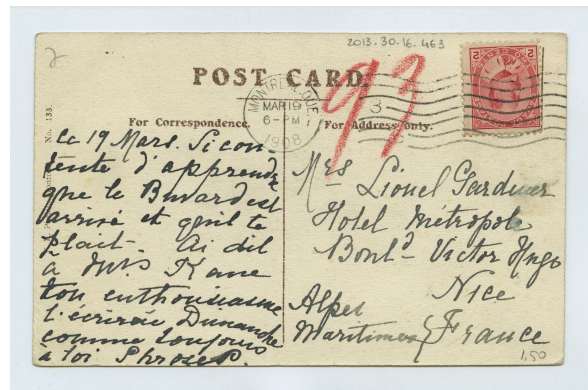 2013.30.16.463
POST CARD
93
MONTREAL, QUE.
MAR 19
6-PM
1908
3
2 2
For Correspondence.
For Address only.
No. 133.
Le 19 Mars. Si con-
tente d'apprendre
que le Buvard est
arrivé et qu'il te
plait. Ai dit
à Mrs Kane
ton enthousiasme
t'écrirai Dimanche
comme toujours
à toi
Mrs Lionel Gardner
Hotel Métropole
Boul^d Victor Hugo
Nice
Alpes
Maritimes France
1.50